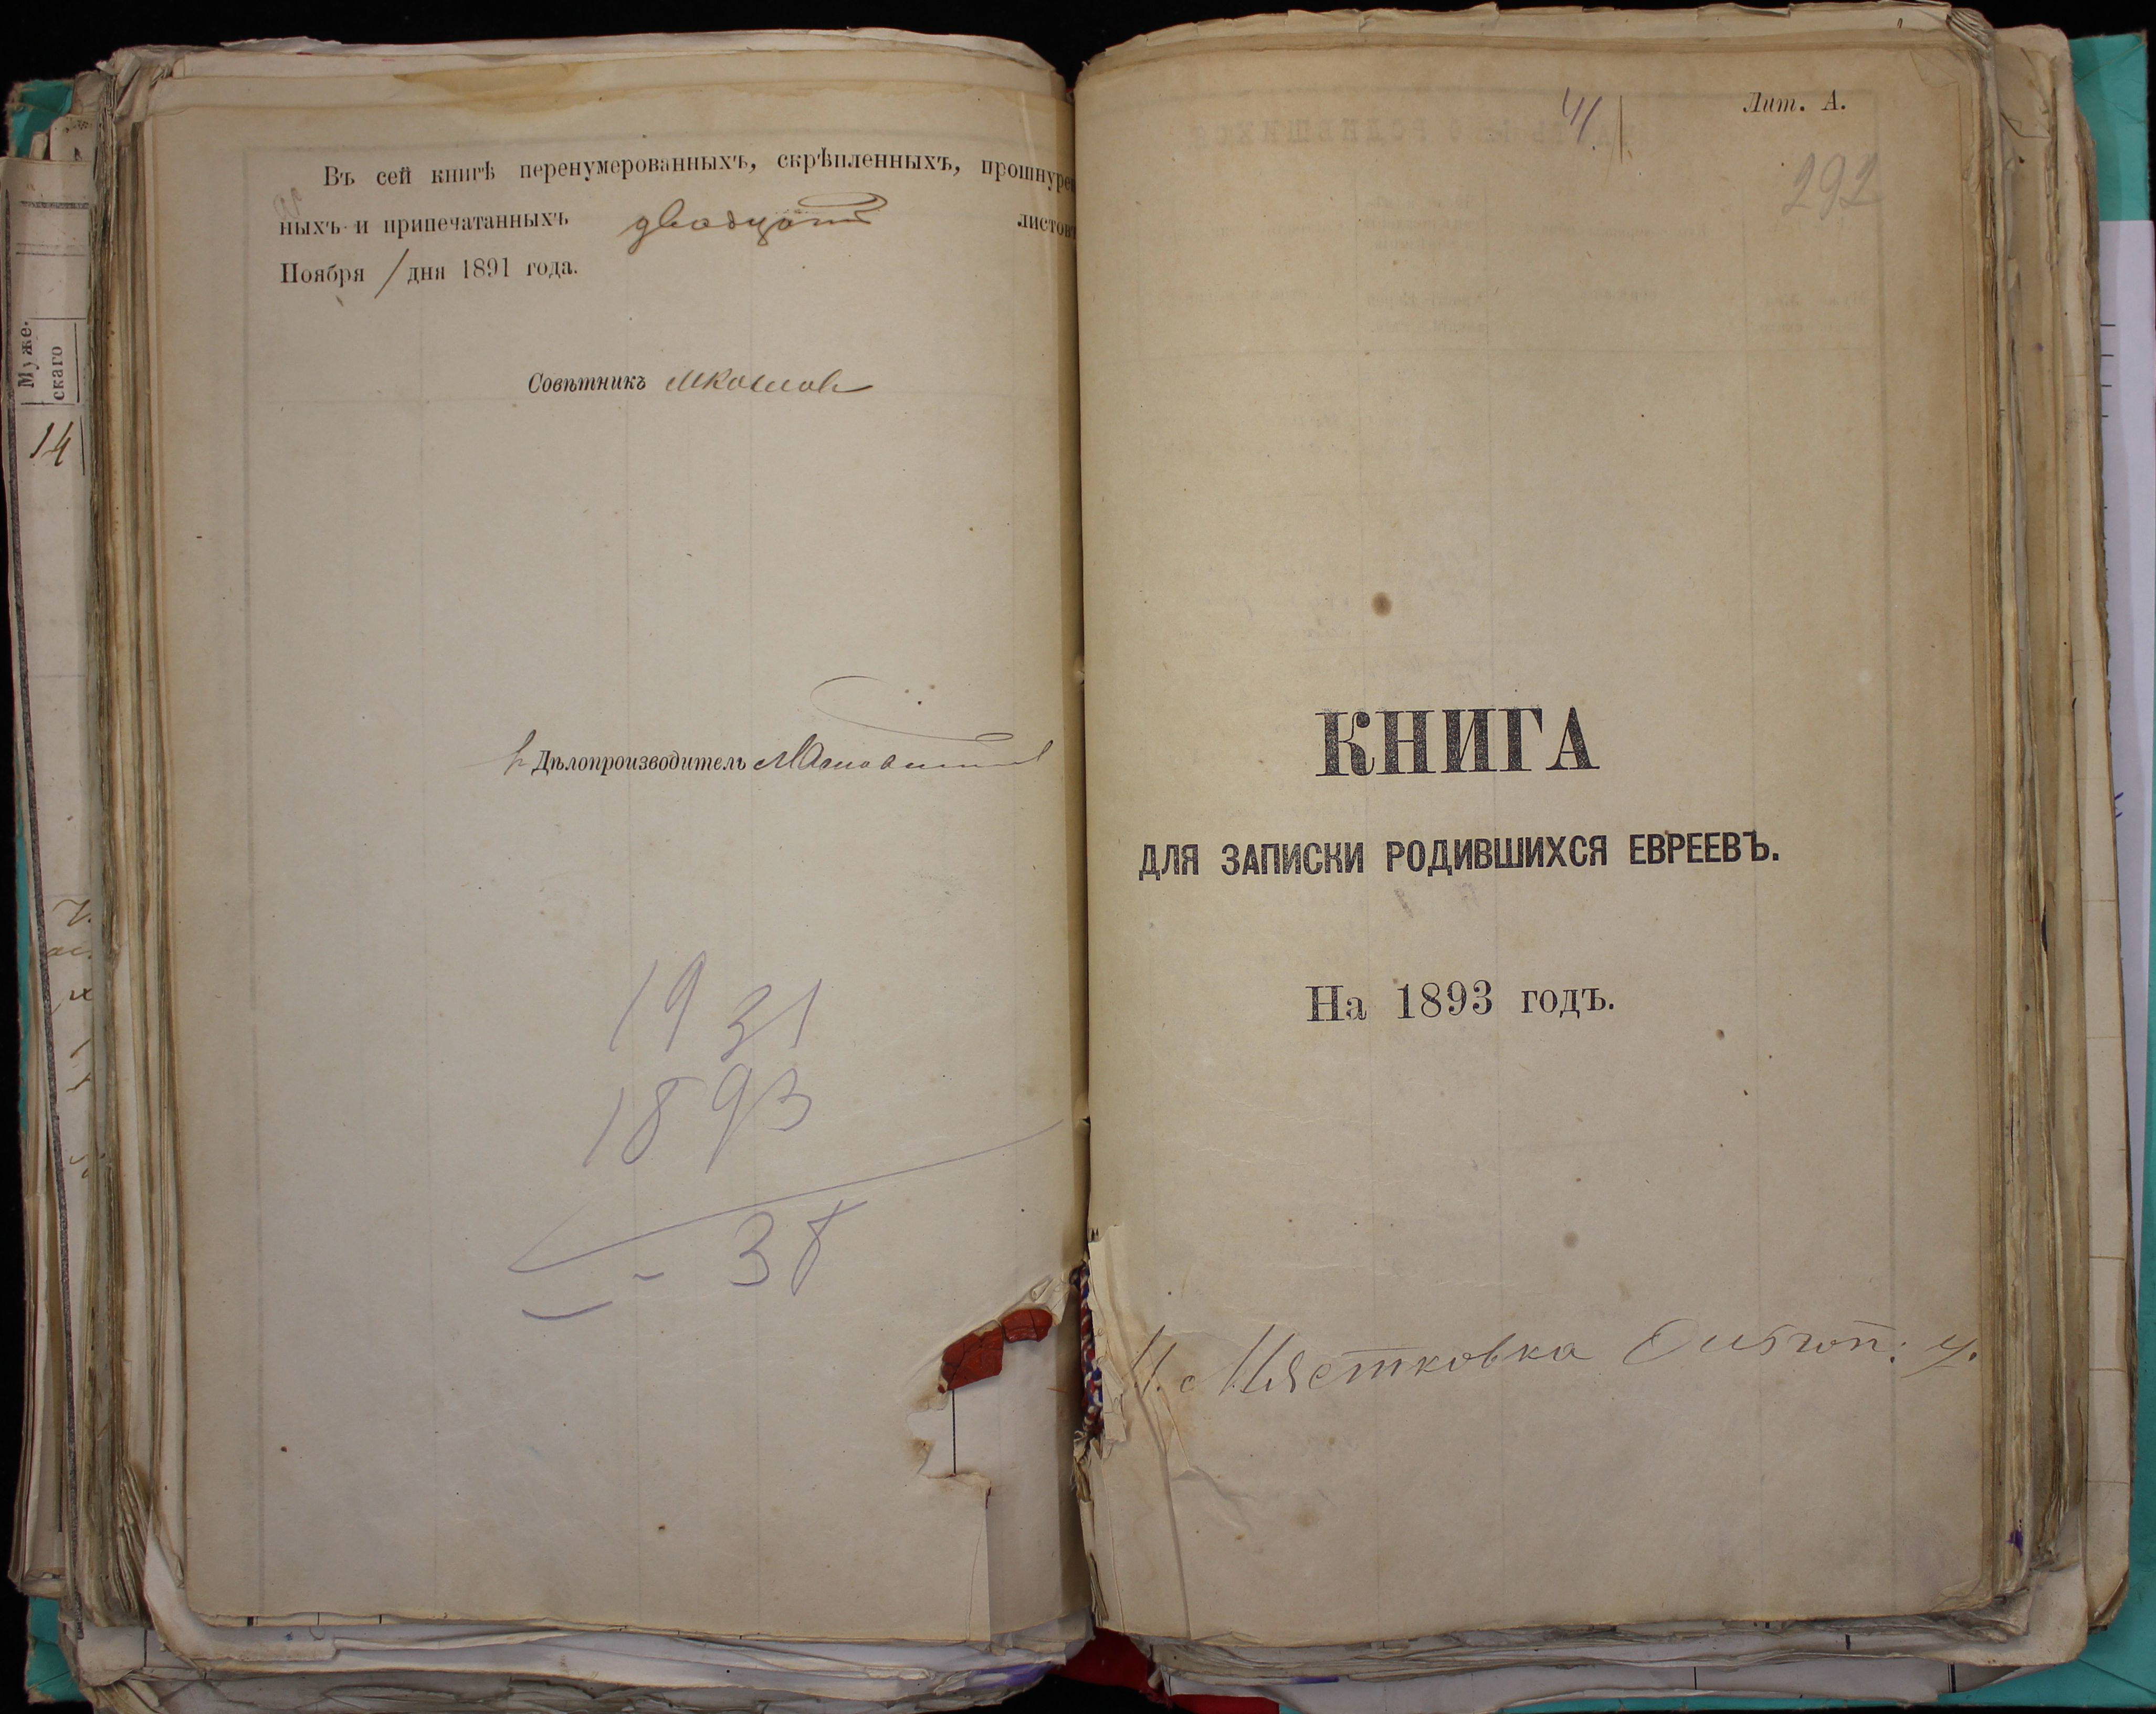 Муже.
скаго
14
Въ сей книгѣ перенумерованныхъ, скрѣпленныхъ, прошнуро
ныхъ и припечатанныхъ двадцать листовъ
Ноября 1 дня 1891 года.
Совѣтникъ
Дѣлопроизводитель
1931
1893
- 38
41
Лит. А.
292
КНИГА
ДЛЯ ЗАПИСКИ РОДИВШИХСЯ ЕВРЕЕВЪ.
На 1893 годъ.
М. Мястковка Ольгоп. у.